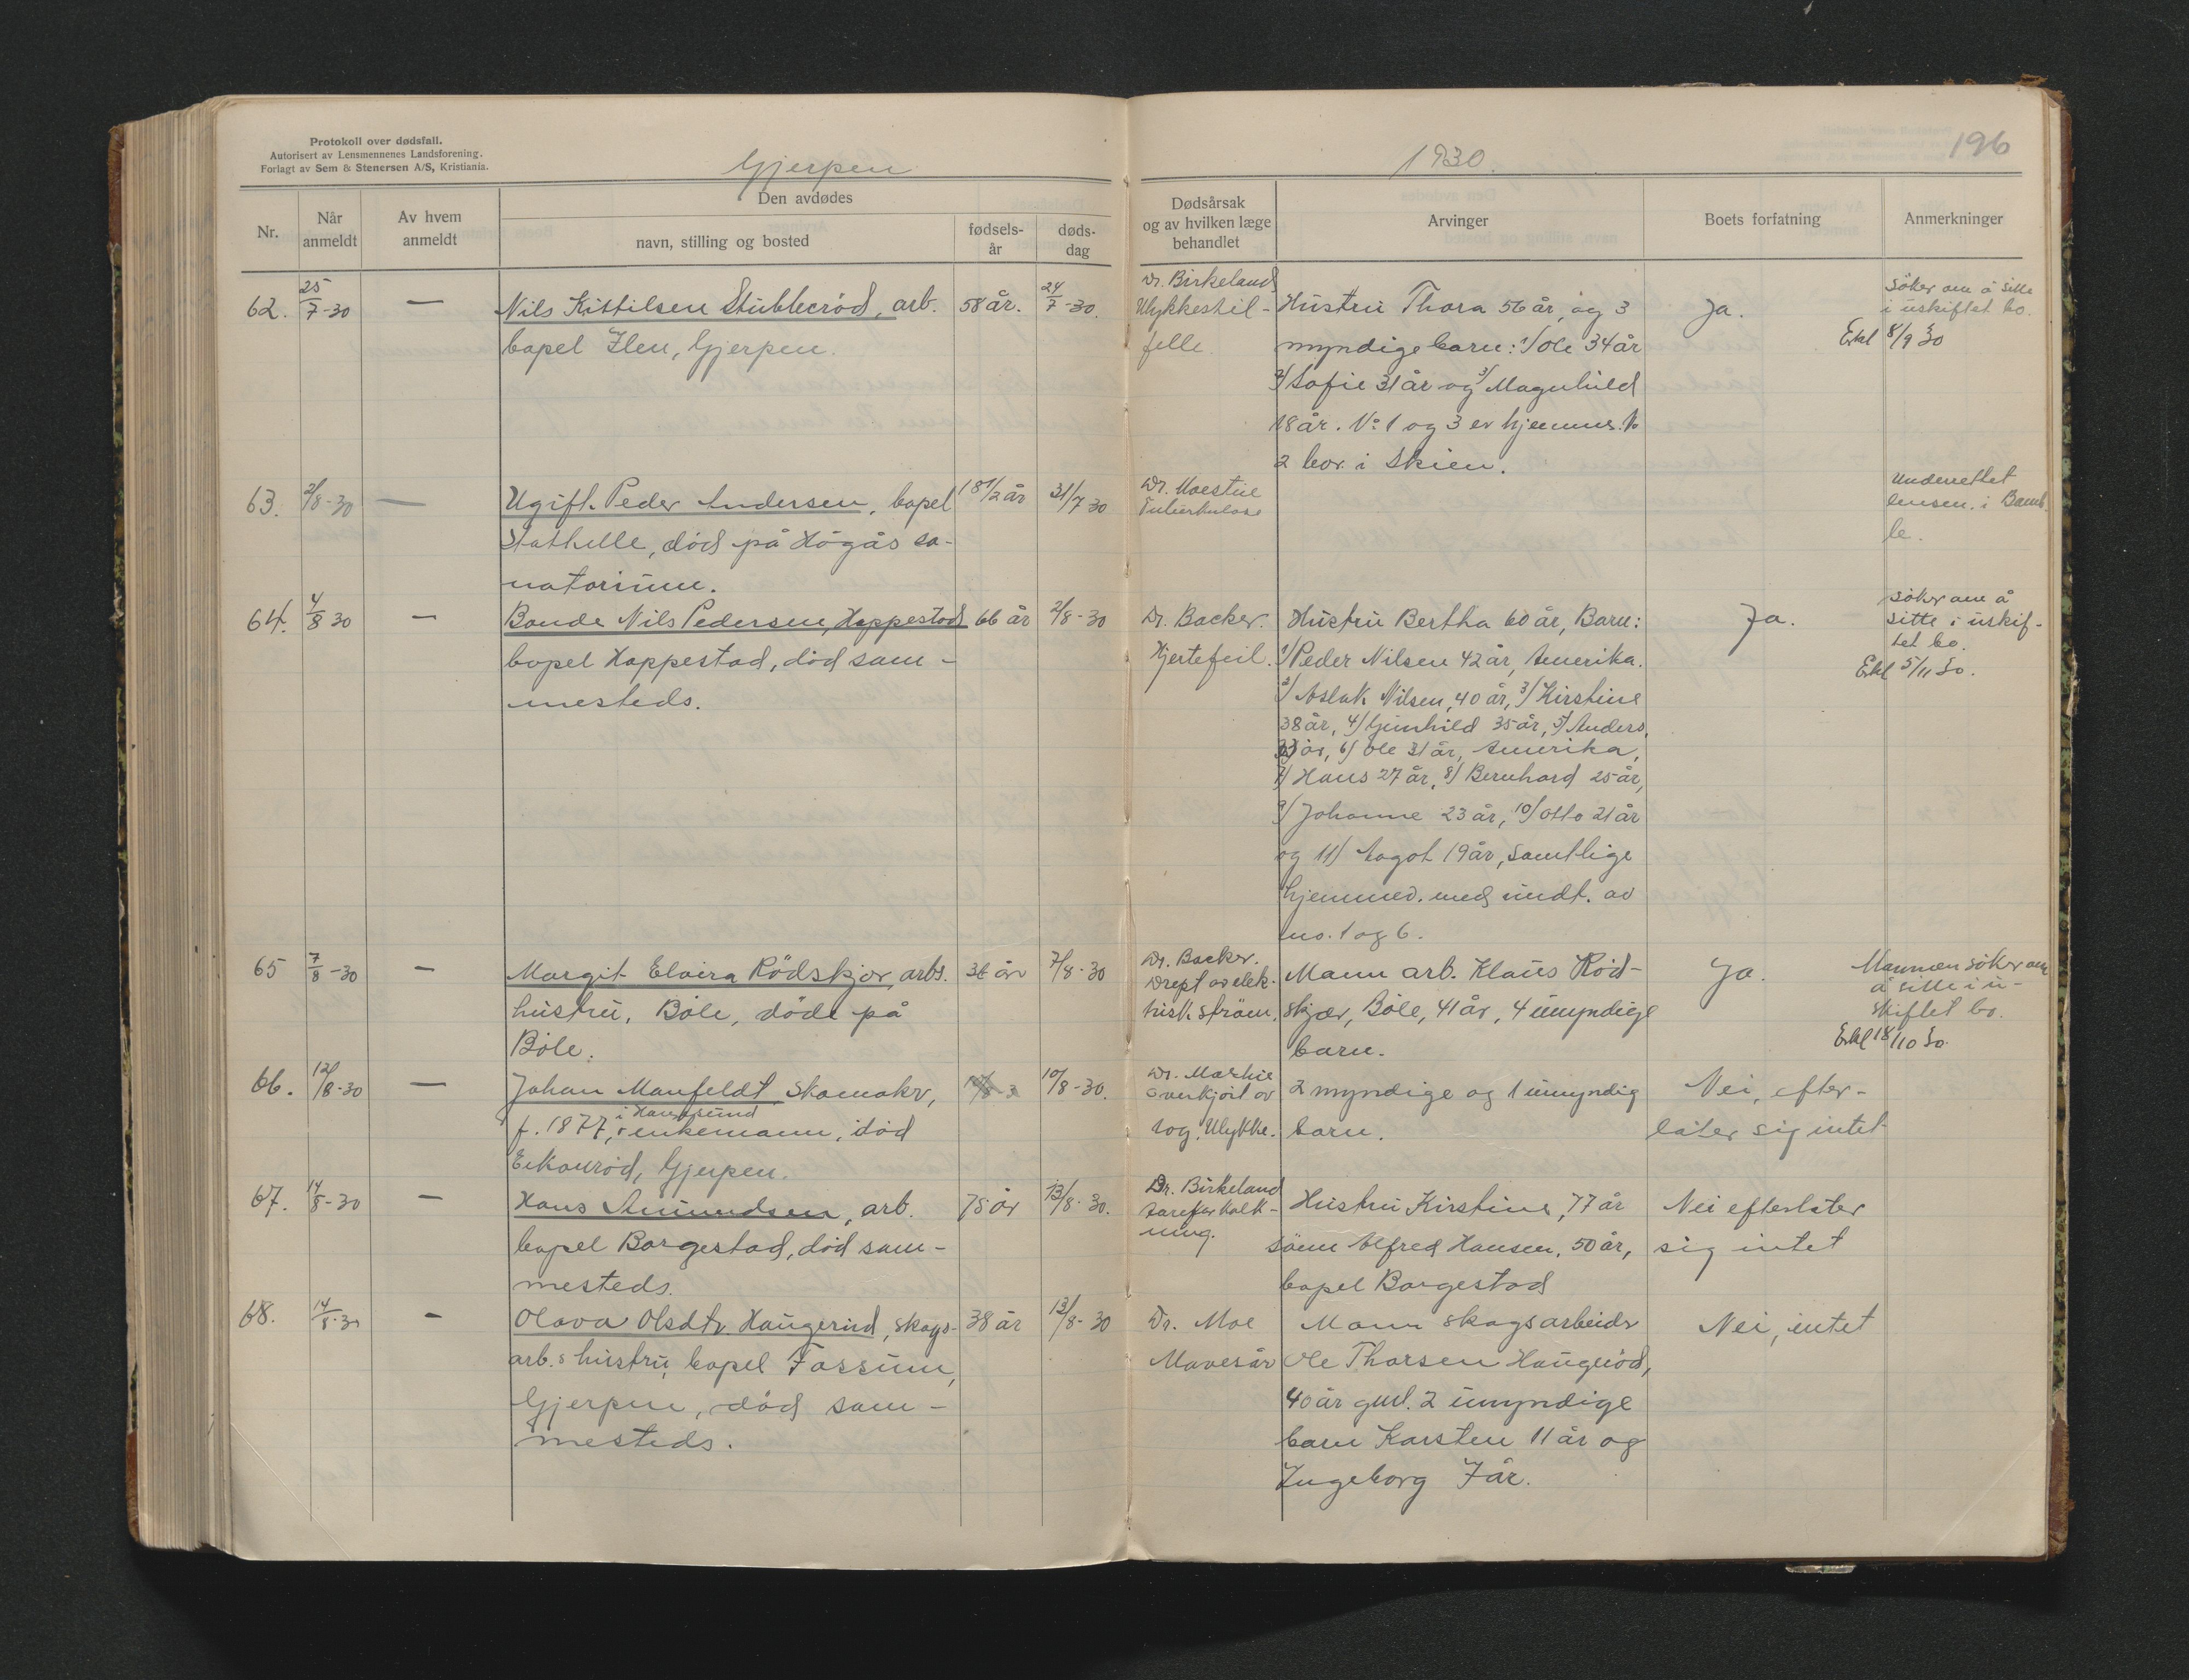 Protokoll over dødsfall.
Autorisert av Lensmennenes Landsforening.
Forlagt av Sem & Stenersen A/S, Kristiania.
Gjerpen
1930.
196
Nr.
Når anmeldt
Av hvem anmeldt
Den avdødes
navn, stilling og bosted
fødsels-år
døds-dag
Dødsårsak og av hvilken læge behandlet
Arvinger
Boets forfatning
Anmerkninger
62. 25/7-30 — Nils Kittilsen Stubberöd, arb. 58 år. 24/7-30.
bopel Ilen, Gjerpen.
Dr. Birkeland
Ulykkestil-
felle.
Hustru Thora 56 år, og 3
myndige barn: 1/ Ole 34 år
2/ Sofie 31 år og 3/ Magnhild
18 år. No 1 og 3 er hjemmev. No
2 bor i Skien.
Ja.
Söker om å sitte
i uskiftet bo.
Erkl 8/9 30
63. 2/8-30 — Ugift Peder Andersen, bopel 18 1/2 år 31/7 30
Stathelle, död på Högås sa-
natorium.
Dr. Moestue
Tuberkulose
Underrettet
lensm. i Bamb-
le.
64. 4/8 30 — Bonde Nils Pedersen, Hoppestad 66 år 2/8-30
bopel Hoppestad, död sam-
mesteds.
Dr. Backer.
Hjertefeil.
Hustru Bertha 60 år, Barn:
1/ Peder Nilsen 42 år, Amerika.
2/ Aslak Nilsen, 40 år, 3/ Kirstine
38 år, 4/ Gunhild 35 år, 5/ Anders,
33 år, 6/ Ole 31 år, Amerika,
7/ Hans 27 år, 8/ Bernhard 25 år,
9/ Johanne 23 år, 10/ Otto 21 år
og 11/ Aagot 19 år, samtlige
hjemmev. med undt. av
no. 1 og 6.
Ja.
Söker om å
sitte i uskif-
tet bo.
Erkl 5/11 30.
65 7/8-30 — Margit Elvira Rödskjær, arbs. 36 år 7/8-30
hustru, Böle, döde på
Böle.
Dr. Backer.
Drept av elek-
trisk ström.
Mann arb. Klaus Röd-
skjær, Böle, 41 år, 4 umyndige
barn.
Ja.
Mannen söker om
å sitte i u-
skiftet bo.
Erkl 18/10 30.
66. 12/8-30 — Johan Manfeldt Skomaker, 10/8-30.
f. 1877, i Haugesund enkemann, död
Eikonröd, Gjerpen.
Overkjört av
tog. Ulykke.
2 myndige og 1 umyndig
barn.
Nei, efter-
later sig intet
67. 14/8-30 — Hans Amundsen, arb. 75 år 13/8-30.
bopel Borgestad, död sam-
mesteds.
Dr. Birkeland
Åreforkalk-
ning.
Hustru Kirstine, 77 år
sönn Alfred Hansen, 50 år,
bopel Borgestad
Nei efterlater
sig intet
68. 14/8-30 — Olava Olsdtr. Haugerud, skogs- 38 år 13/8-30
arb.s hustru, bopel Fossum,
Gjerpen, död sam-
mesteds.
Dr. Moe
Mavesår
Mann skogsarbeider
Ole Thorsen Haugeröd,
40 år gml. 2 umyndige
barn Karsten 11 år og
Ingeborg 7 år.
Nei, intet